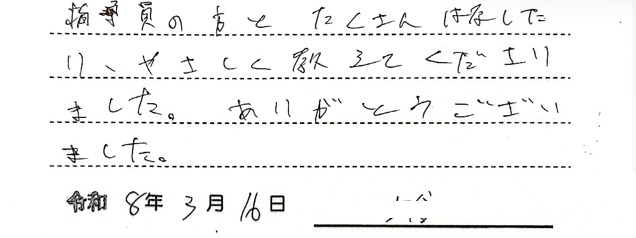 指導員の方と たくさん はなした
り、やさしく 教えて くださり
ました。 ありがとうござい
ました。
令和 8年 3月 16日